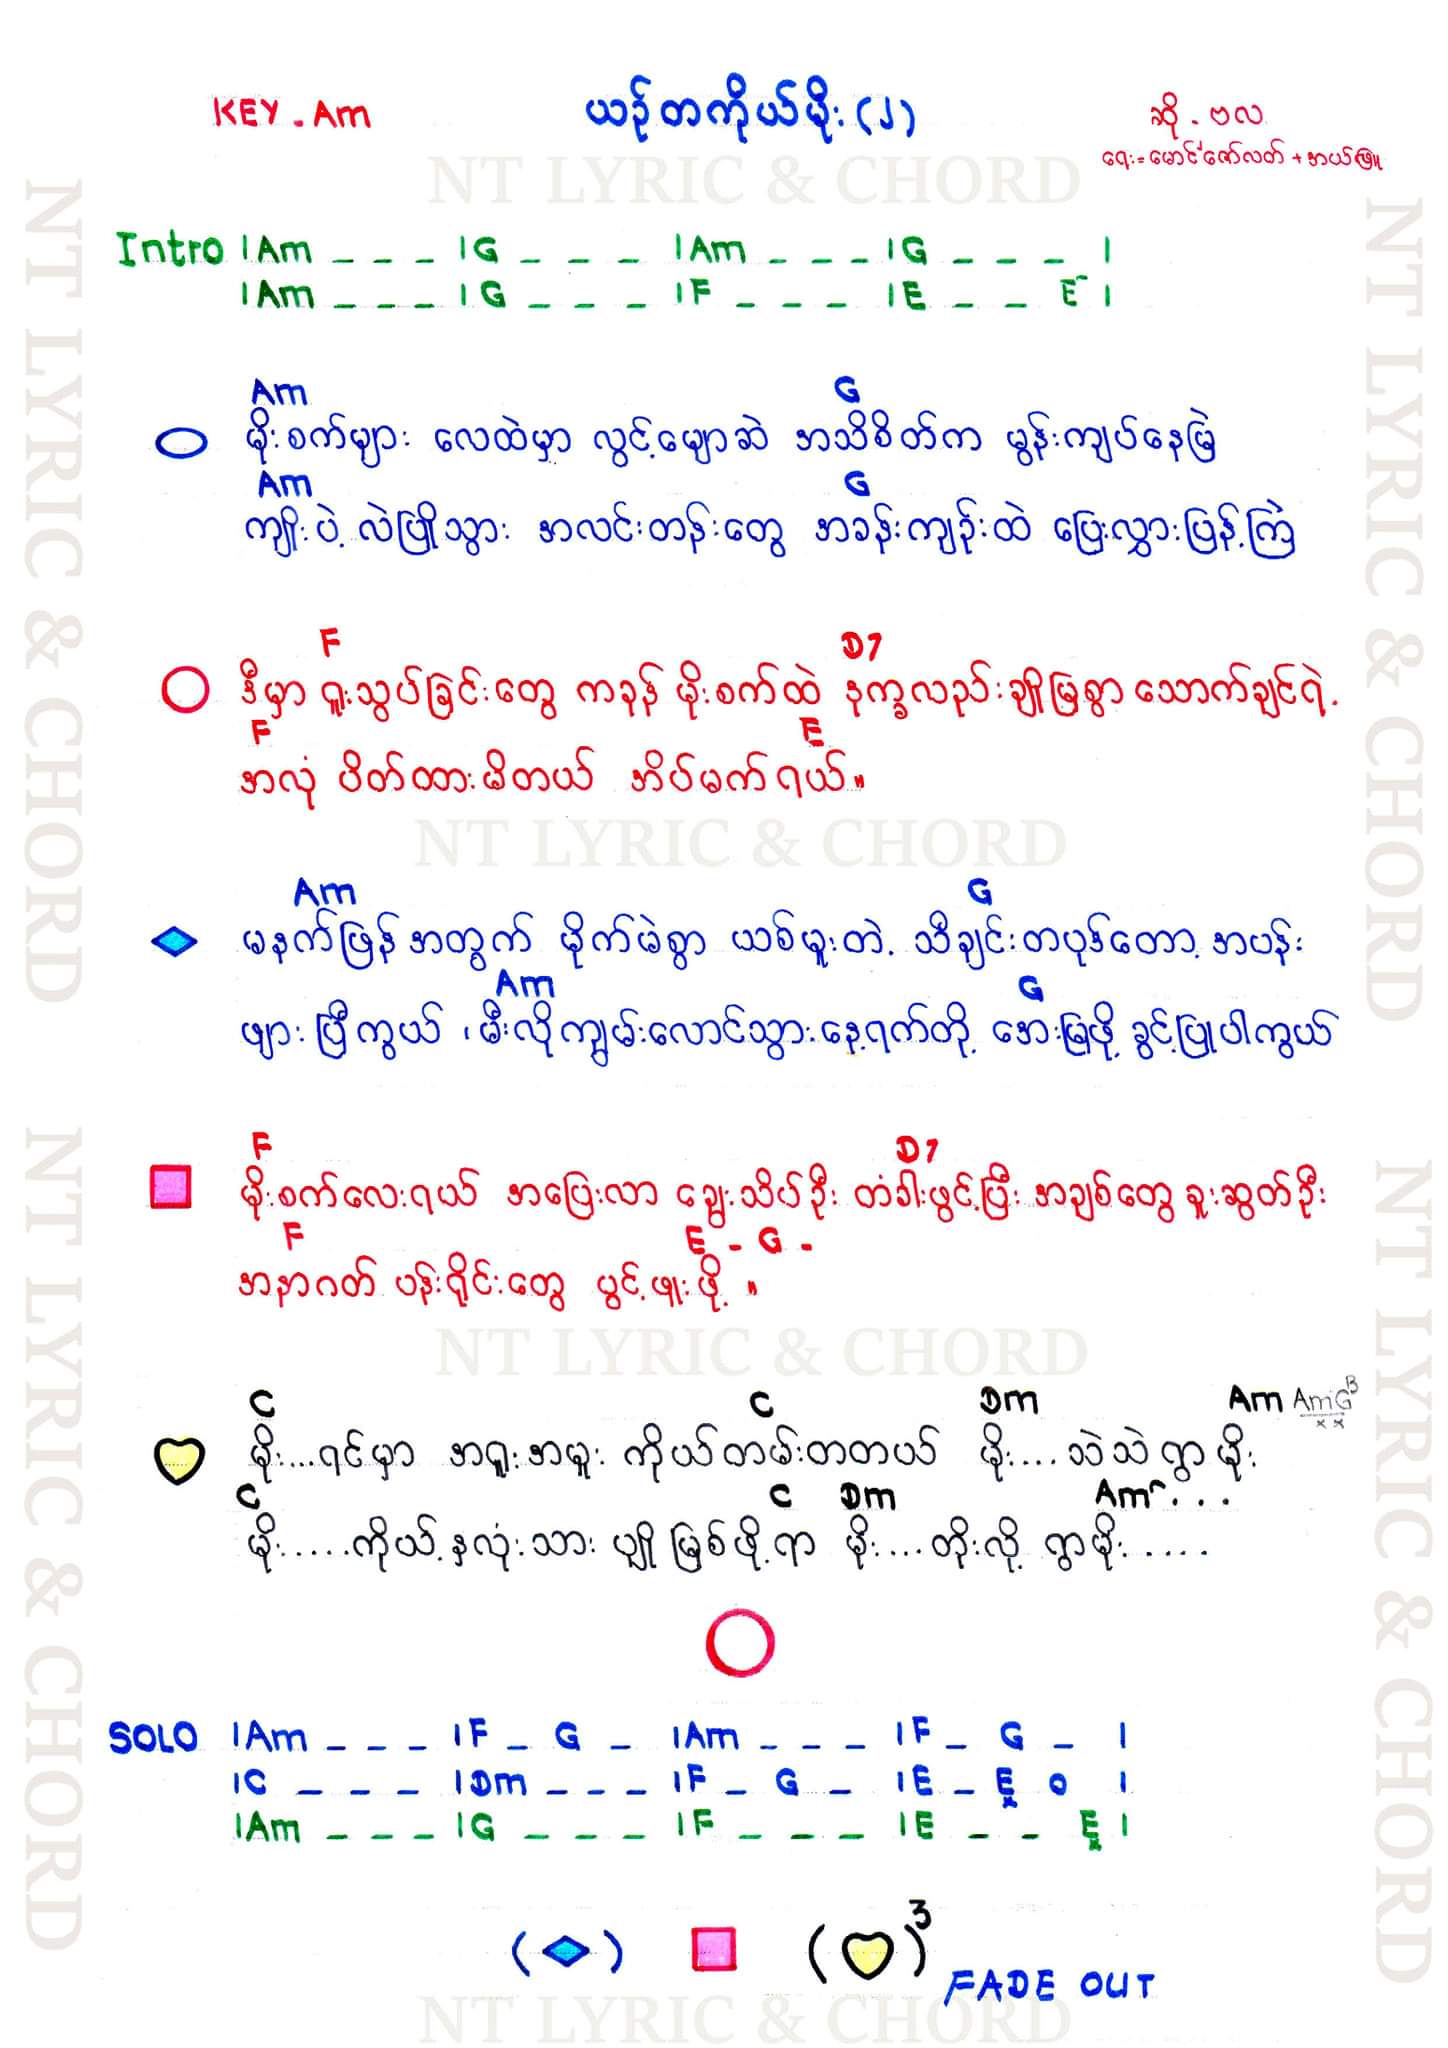 KEY . Am
ယဉ်တကိုယ်မိုး (၂)
ဆို - ဗလ
ရေး = မောင်မောင်ဇော်လတ် + အယ်ဖြူ
NT LYRIC & CHORD
Intro | Am _ _ _ | G _ _ _ | Am _ _ _ | G _ _ _ |
| Am _ _ _ | G _ _ _ | F _ _ _ | E _ _ E |
Am G
မိုးစက်များ လေထဲမှာ လွင့်မျောဆဲ အသိစိတ်က မွန်းကျပ်နေမြဲ
Am G
ကျိုးပဲ့ လဲပြိုသွား အလင်းတန်းတွေ အခန်းကျဉ်းထဲ ပြေးလွှားပြန့်ကြဲ
F D7
ဒီမှာ ရူးသွပ်ခြင်းတွေ ကခုန် မိုးစက်ထဲ နက္ခလည်းချိုမြစွာ သောက်ချင်ရဲ့
F E
အလုံ ပိတ်ထားမိတယ် အိပ်မက်ရယ်။
NT LYRIC & CHORD
Am G
မနက်ဖြန်အတွက် မိုက်မဲစွာ ယစ်မူးတဲ့ သီချင်းတပုဒ်တော့ အပန်း
Am G
ဖျားပြီကွယ် ၊ မီးလိုကျွမ်းလောင်သွားနေ့ရက်တို့ အေးမြဖို့ ခွင့်ပြုပါကွယ်
F D7
မိုးစက်လေးရယ် အပြေးလာ ချွေးသိပ်ဦး တံခါးဖွင့်ပြီး အချစ်တွေ ခူးဆွတ်ဦး
F E - G -
အနာဂတ် ပန်းရိုင်းတွေ ပွင့်ဖူးဖို့ ။
NT LYRIC & CHORD
C C Dm Am AmG B
မိုး...ရင်မှာ အရူးအမူး ကိုယ်တမ်းတတယ် မိုး....သဲသဲရွာမိုး
C C Dm Am . . .
မိုး.....ကိုယ့်နှလုံးသား ပျိုမြစ်ဖို့ရာ မိုး....တိုးလို့ ရွာမိုး.....
SOLO | Am _ _ _ | F _ G _ | Am _ _ _ | F _ G _ |
| C _ _ _ | Dm _ _ _ | F _ G _ | E _ E o |
| Am _ _ _ | G _ _ _ | F _ _ _ | E _ _ E |
( ) ( )3
FADE OUT
NT LYRIC & CHORD
NT LYRIC & CHORD
NT LYRIC & CHORD
NT LYRIC & CHORD
NT LYRIC & CHORD